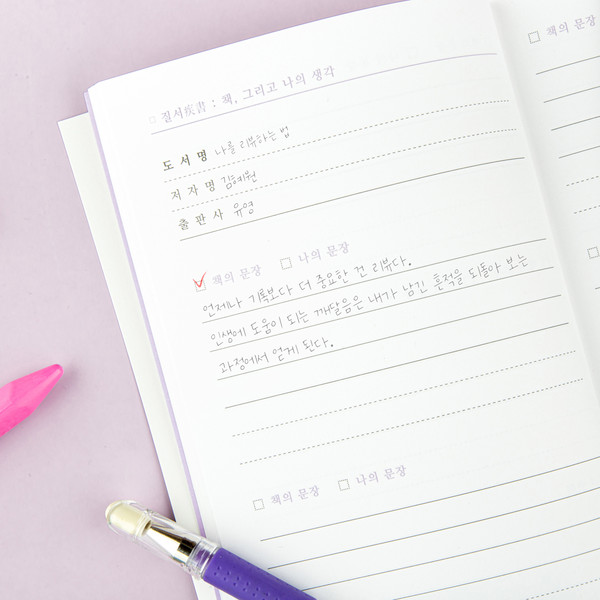 질서疾書 : 책, 그리고 나의 생각
도서명 나를 리뷰하는 법
저자명 김혜원
출판사 유영
책의 문장 나의 문장
언제나 기록보다 더 중요한 건 리뷰다.
인생에 도움이 되는 깨달음은 내가 남긴 흔적을 되돌아 보는
과정에서 얻게 된다.
책의 문장 나의 문장
책의 문장